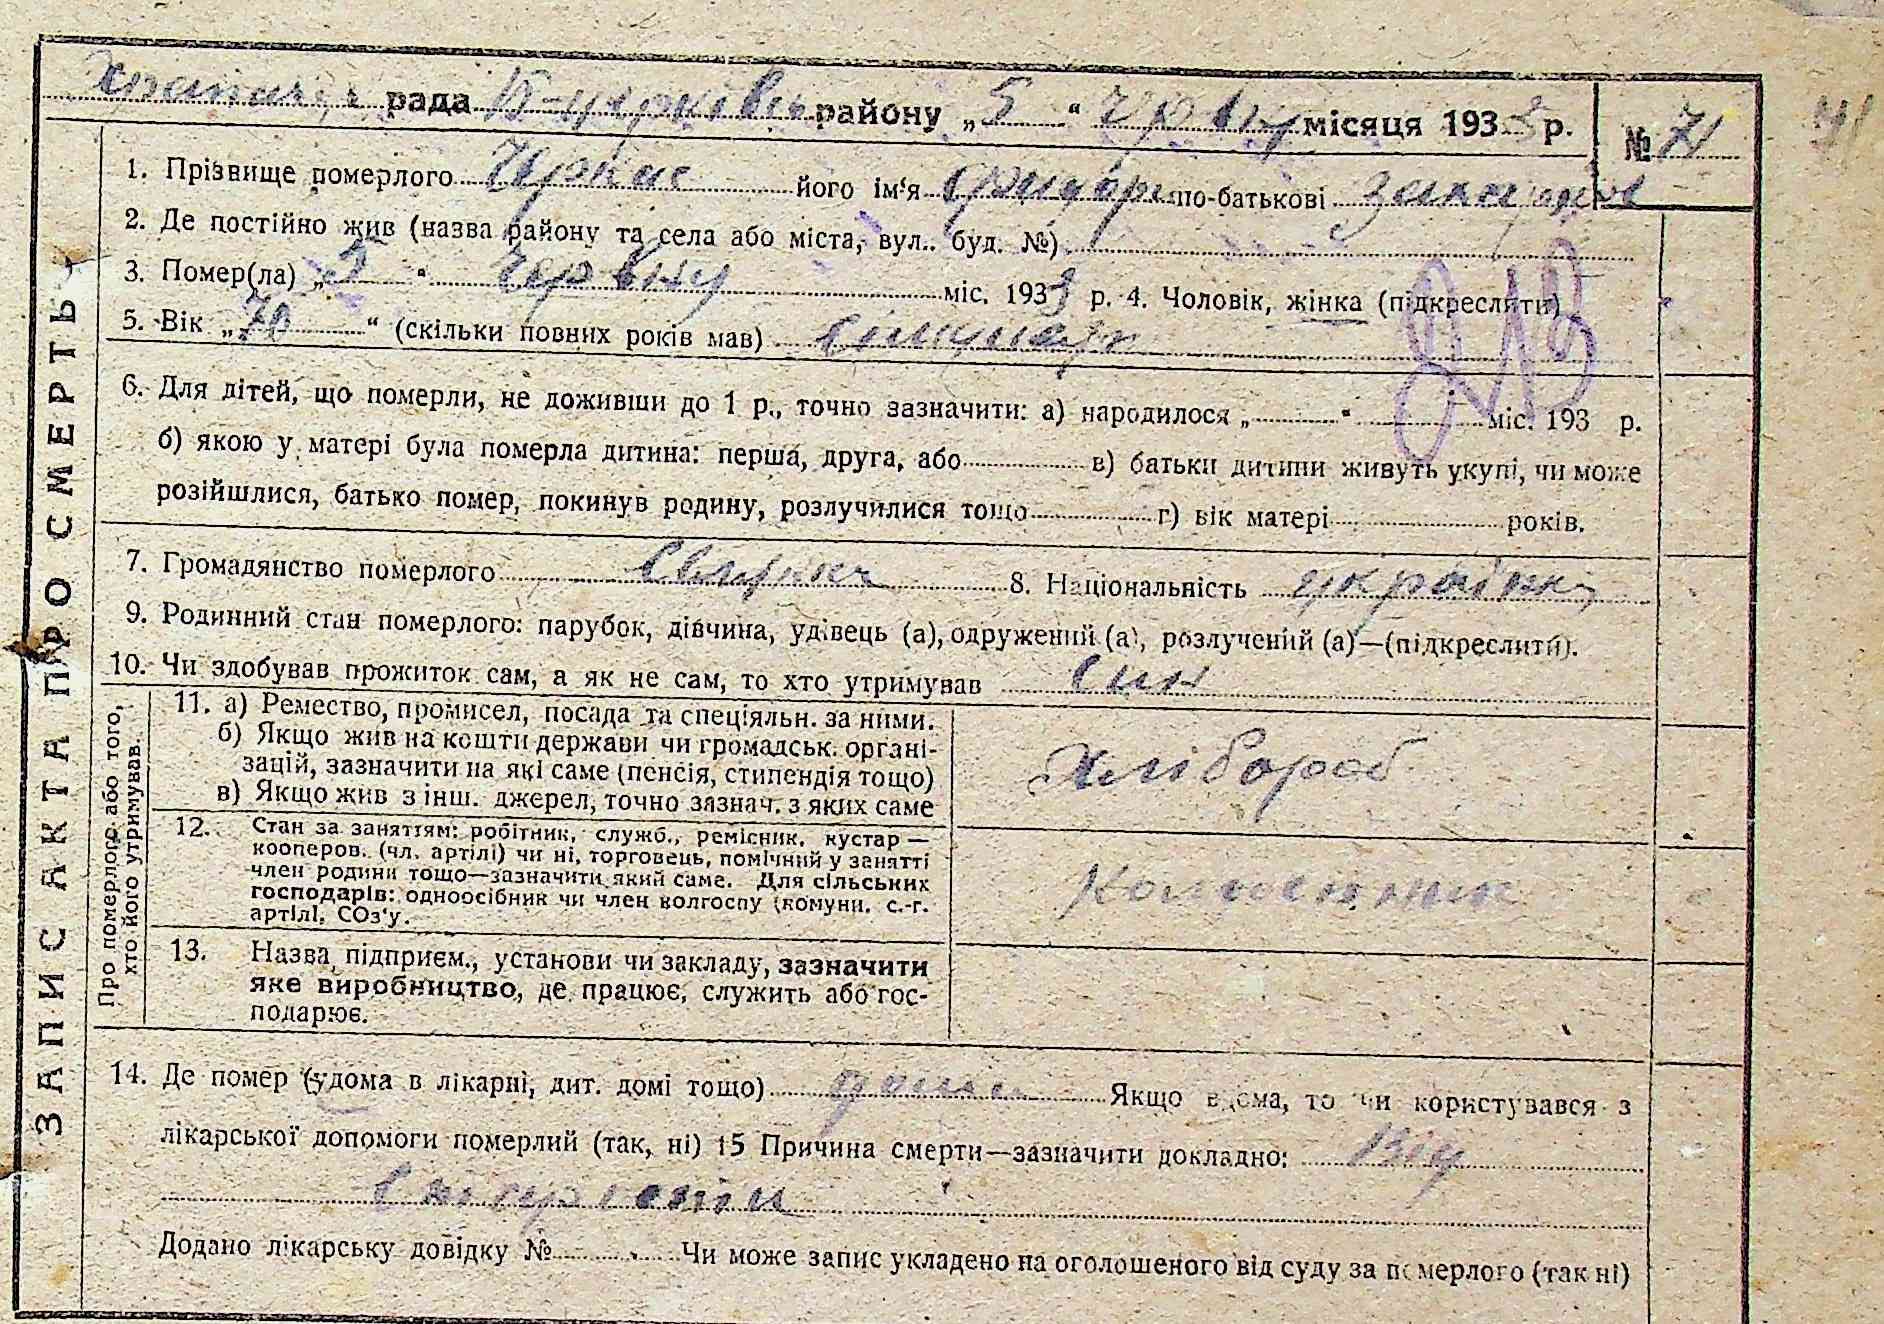 рада Б-церківсь району „5“ червня місяця 1933 р. № 71
71
1. Прізвище померлого Черкас його ім‘я по-батькові
2. Де постійно жив (назва району та села або міста, вул.. буд. №)
3. Помер(ла) „5“ червня міс. 1933 р. 4. Чоловік, жінка (підкреслити)
5. Вік „70“ (скільки повних років мав) сімдесят
6. Для дітей, що померли, не доживши до 1 р., точно зазначити: а) народилося „ “ міс. 193 р.
б) якою у матері була померла дитина: перша, друга, або в) батьки дитини живуть укупі, чи може
розійшлися, батько помер, покинув родину, розлучилися тощо г) вік матері років.
7. Громадянство померлого 8. Національність україн
9. Родинний стан померлого: парубок, дівчина, удівець (а), одружений (а), розлучений (а)—(підкреслити).
10. Чи здобував прожиток сам, а як не сам, то хто утримував син
ЗАПИС АКТА ПРО СМЕРТЬ
Про померлого або того,
хто його утримував.
11. а) Ремество, промисел, посада та спеціяльн. за ними.
б) Якщо жив на кошти держави чи громадськ. органі-
зацій, зазначити на які саме (пенсія, стипендія тощо)
в) Якщо жив з інш. джерел, точно зазнач. з яких саме
Хлібороб
12. Стан за заняттям: робітник, служб., ремісник, кустар —
кооперов. (чл. артілі) чи ні, торговець, помічний у занятті
член родини тощо—зазначити який саме. Для сільських
господарів: одноосібник чи член колгоспу (комуни, с.-г.
артілі, СОз‘у.
13. Назва підприєм., установи чи закладу, зазначити
яке виробництво, де працює, служить або гос-
подарює.
14. Де помер (удома в лікарні, дит. домі тощо) дома Якщо вдома, то чи користувався з
лікарської допомоги померлий (так, ні) 15 Причина смерти—зазначити докладно: Від
Додано лікарську довідку № Чи може запис укладено на оголошеного від суду за померлого (так ні)